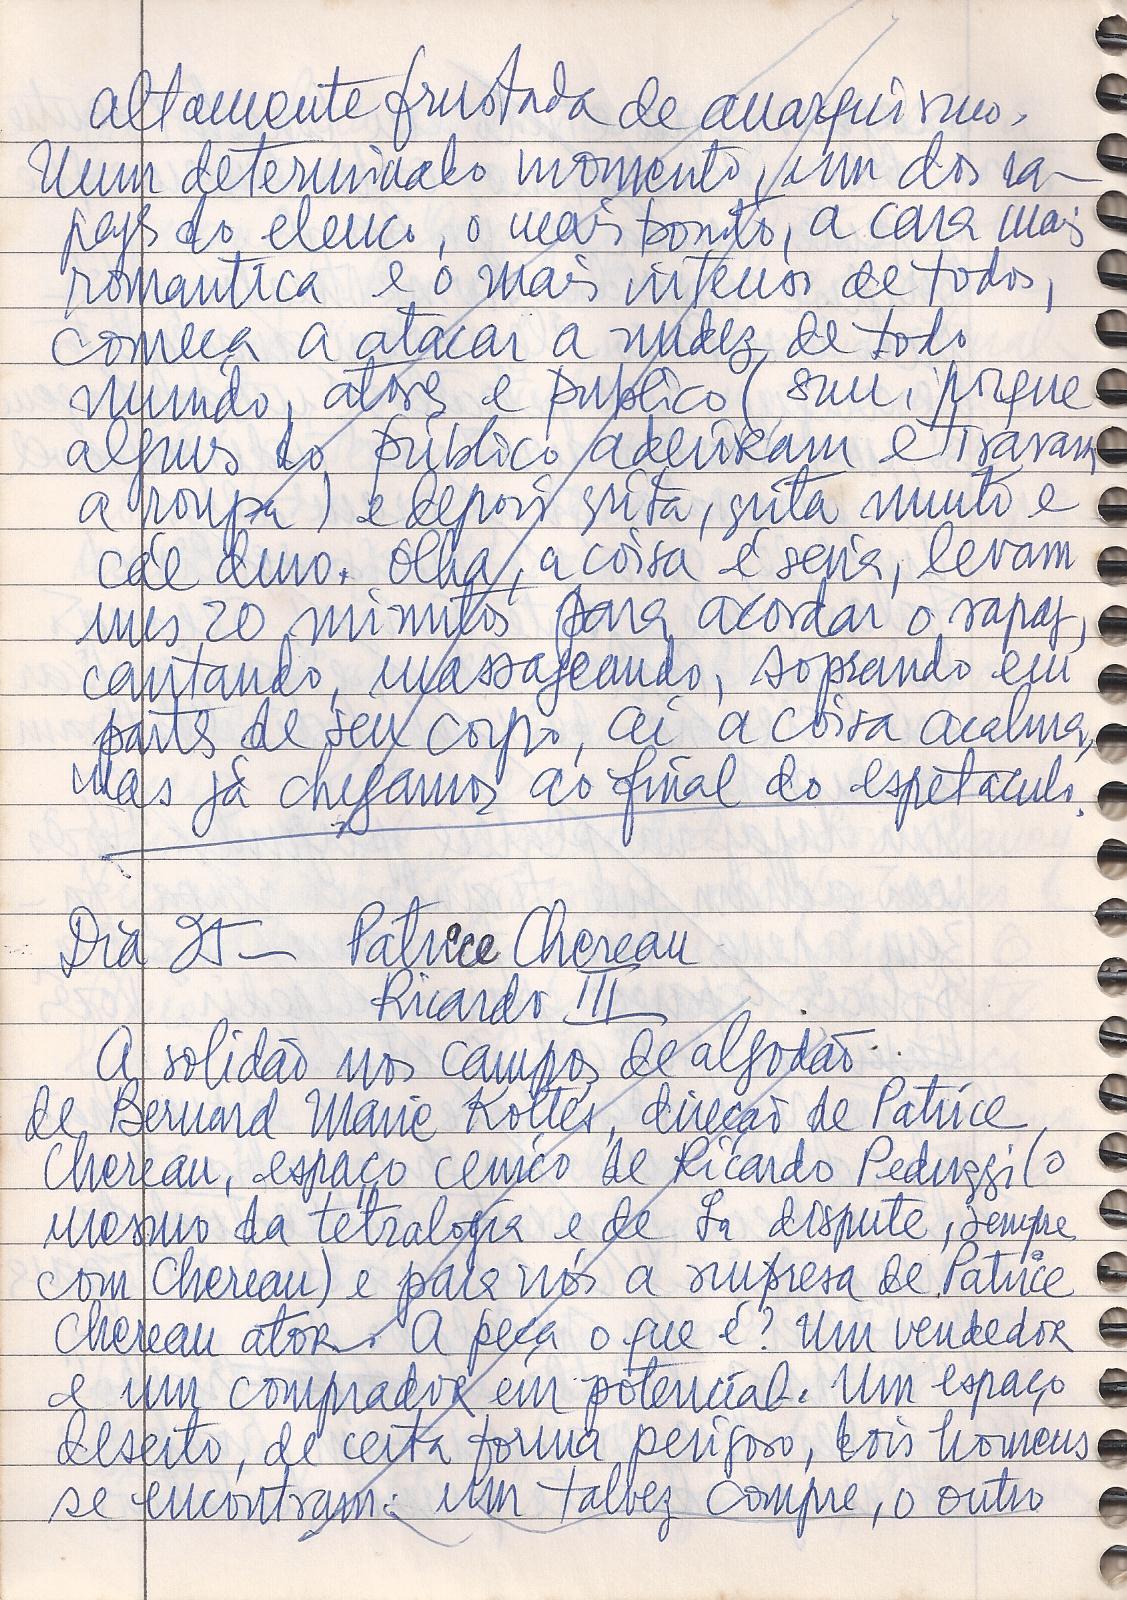 altamente frustada de anarquismo.
Num determinado momento, um dos ra-
pazes do elenco, o mais bonito, a cara mais
romantica e o mais intenso de todos,
começa a atacar a nudez de todo
mundo, atores e publico (sim, porque
alguns do público aderiram e tiraram
a roupa) e depois grita, grita muito e
cáe duro. Olha, a coisa é séria, levam
uns 20 minutos para acordar o rapaz,
cantando, massageando, soprando em
parte de seu corpo, ai a coisa acalma,
mas já chegamos ao final do espetaculo.
Dia 25 — Patrice Chereau
Ricardo III
A solidão nos campos de algodão
de Bernard Marie Koltes, direção de Patrice
Chereau, espaço cenico de Ricardo Peduzzi (o
mesmo da tetralogia e de La dispute, sempre
com Chereau) e para nós a surpresa de Patrice
Chereau ator. A peça o que é? Um vendedor
e um comprador em potencial. Um espaço
deserto, de certa forma perigoso, dois homens
se encontram: um talvez compre, o outro